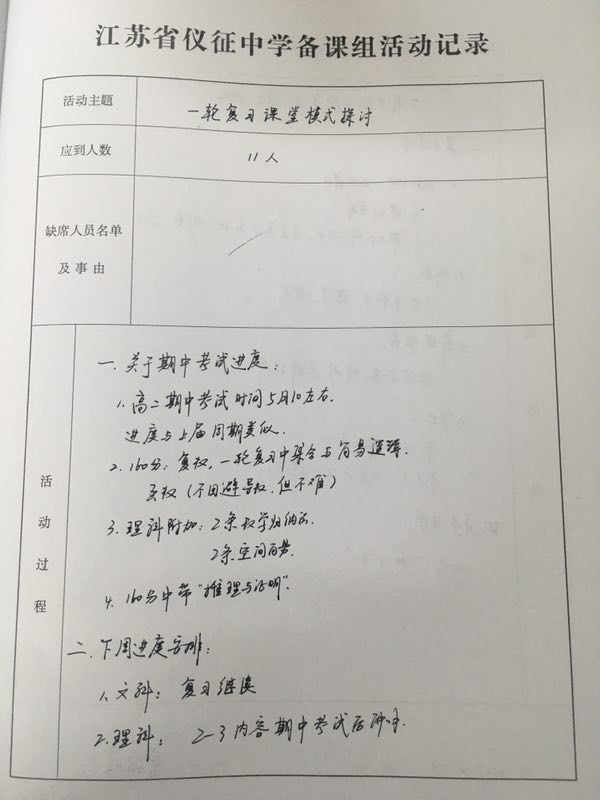 江苏省仪征中学备课组活动记录
活动主题
一轮复习课堂模式探讨
应到人数
11人
缺席人员名单
及事由
活动过程
一. 关于期中考试进度:
1. 高二期中考试时间5月10左右.
进度与上届同期类似.
2. 160分: 复数, 一轮复习中集合与简易逻辑.
函数(不回避导数, 但不难)
3. 理科附加: 2条数学归纳法.
2条空间向量.
4. 160分中带"推理与证明".
二. 下周进度安排:
1. 文科: 复习继续
2. 理科: 2-3内容期中考试后